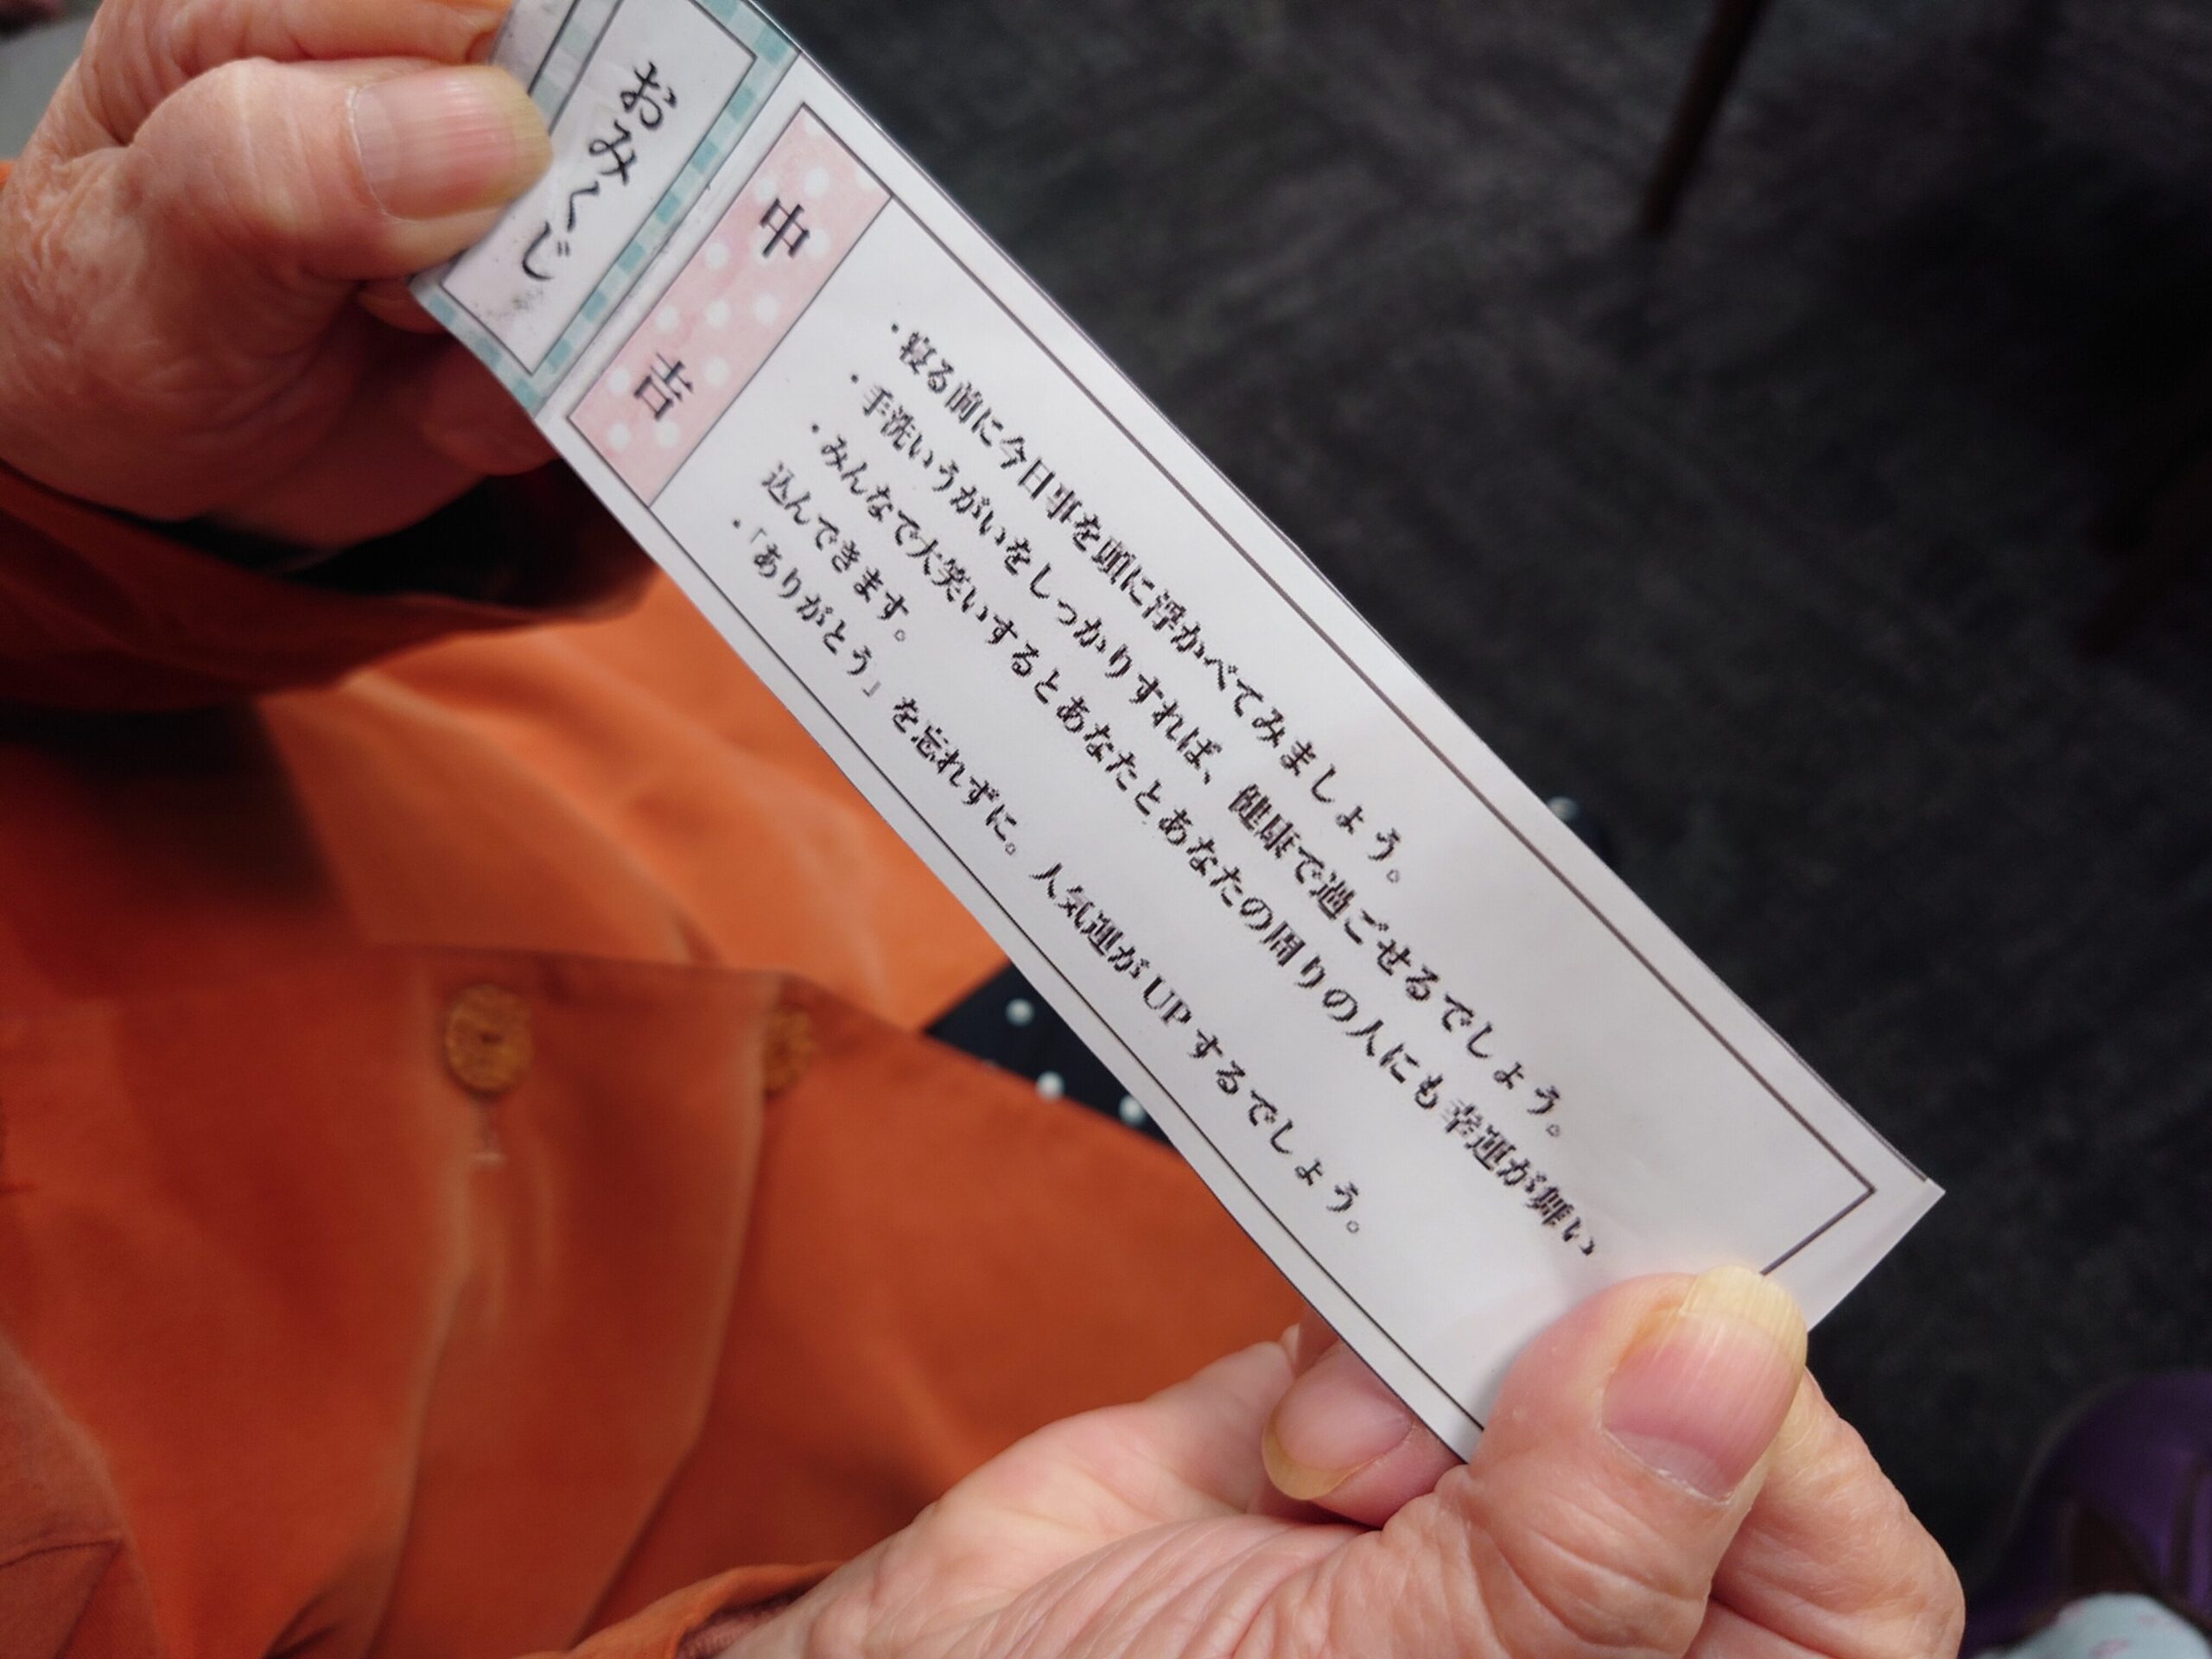 おみくじ
中吉
・寝る前に今日事を頭に浮かべてみましょう。
・手洗いうがいをしっかりすれば、健康で過ごせるでしょう。
・みんなで大笑いするとあなたとあなたの周りの人にも幸運が舞い
込んできます。
・「ありがとう」を忘れずに。人気運がUPするでしょう。